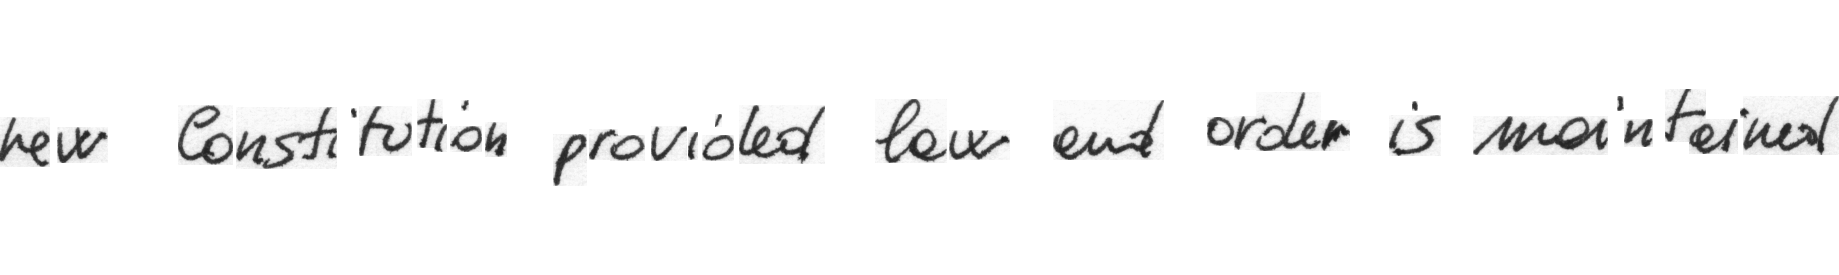 new Constitution provided law and order is maintained